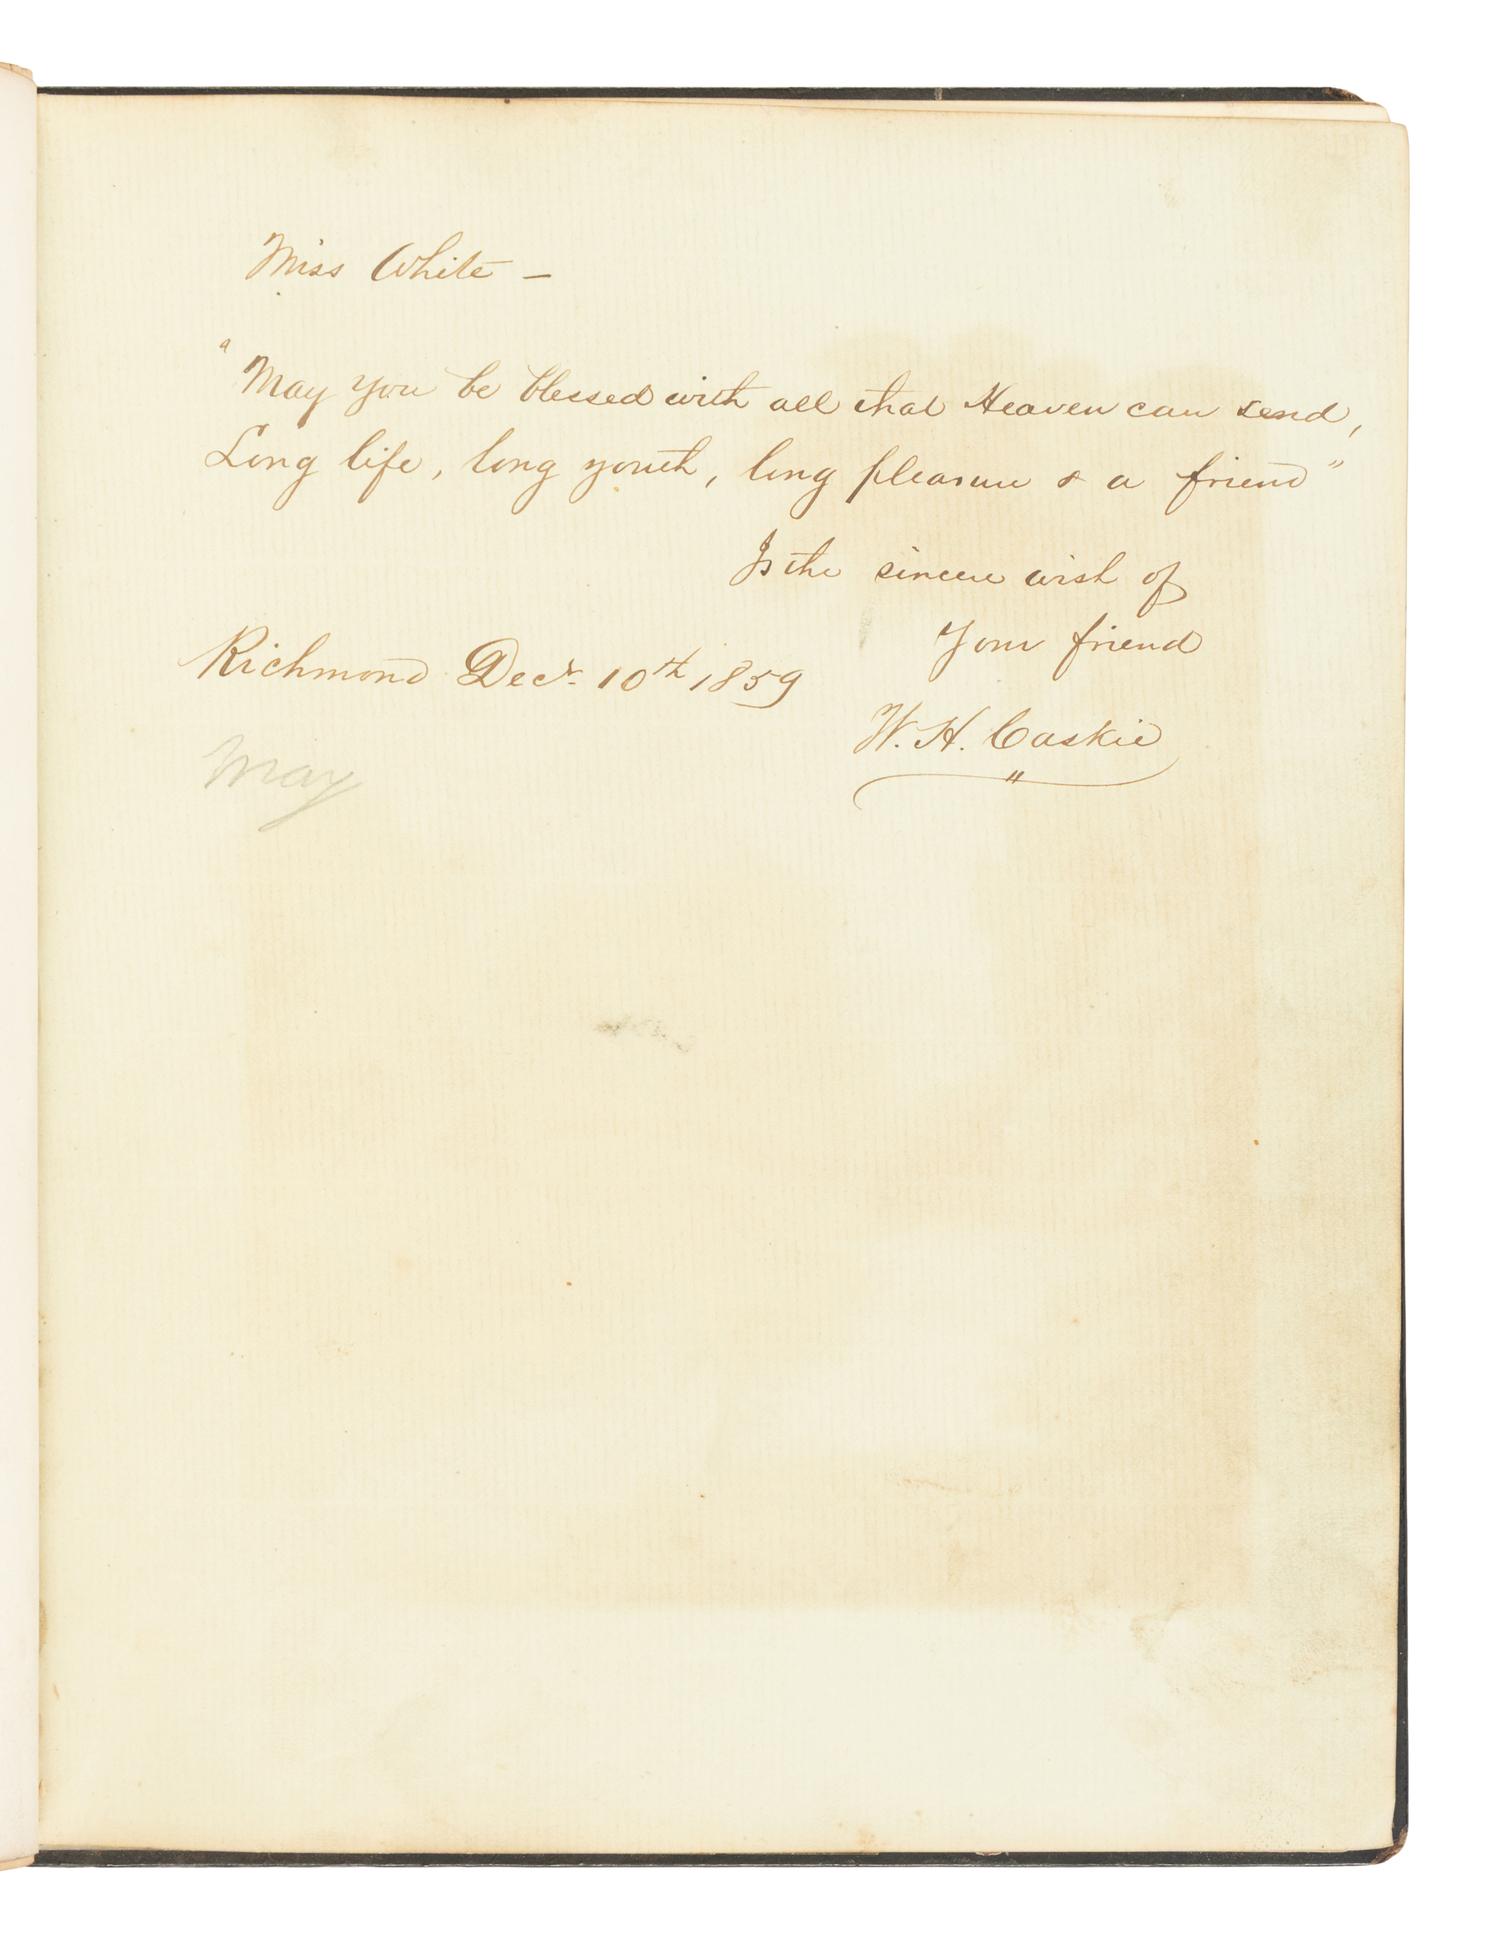 Miss White –
"May you be blessed with all that Heaven can send,
Long life, long youth, long pleasure & a friend"
Is the sincere wish of
Your friend
Richmond Decr. 10th 1859
W. H. Caskie
May